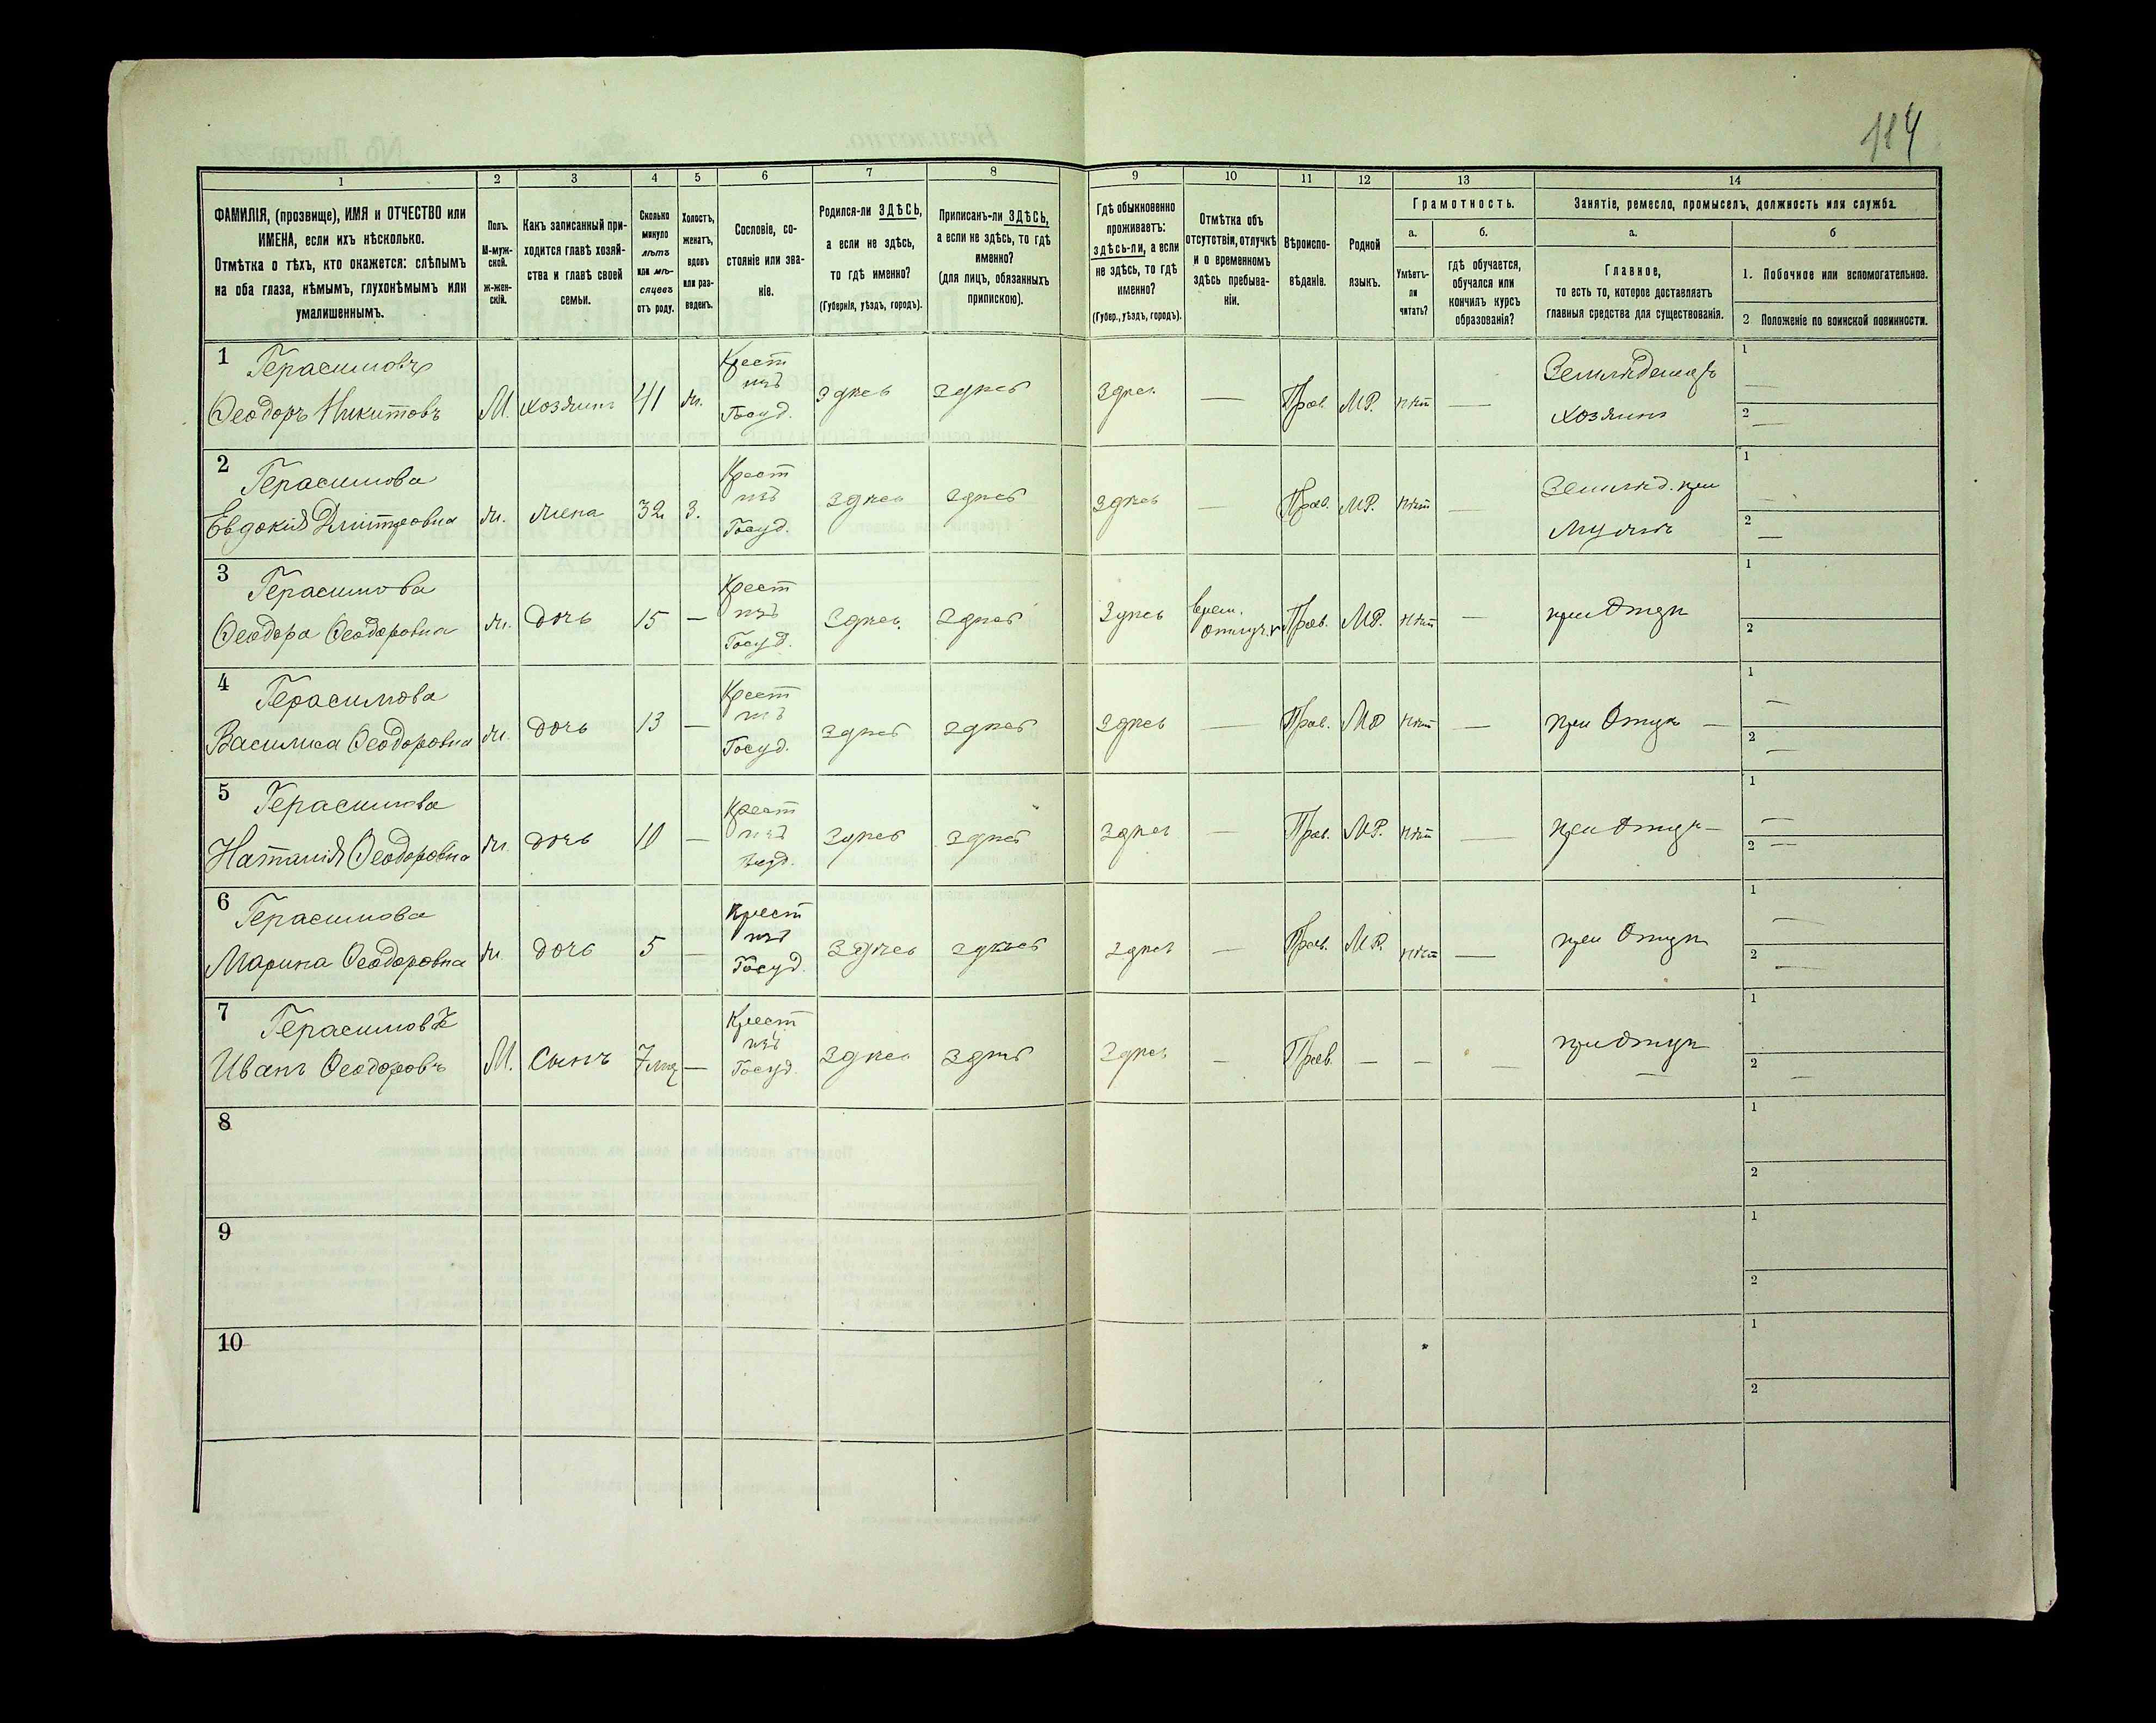 114
1 2 3 4 5 6 7 8 9 10 11 12 13 14
ФАМИЛІЯ, (прозвище), ИМЯ и ОТЧЕСТВО или
ИМЕНА, если ихъ нѣсколько.
Отмѣтка о тѣхъ, кто окажется: слѣпымъ
на оба глаза, нѣмымъ, глухонѣмымъ или
умалишеннымъ.
Полъ.
М-муж-
ской.
ж-жен-
скій.
Какъ записанный при-
ходится главѣ хозяй-
ства и главѣ своей
семьи.
Сколько
минуло
лѣтъ
или мѣ-
сяцевъ
отъ роду.
Холостъ,
женатъ,
вдовъ
или раз-
веденъ.
Сословіе, со-
стояніе или зва-
ніе.
Родился-ли ЗДѢСЬ,
а если не здѣсь,
то гдѣ именно?
(Губернія, уѣздъ, городъ).
Приписанъ-ли ЗДѢСЬ,
а если не здѣсь, то гдѣ
именно?
(для лицъ, обязанныхъ
припискою).
Гдѣ обыкновенно
проживаетъ:
здѣсь-ли, а если
не здѣсь, то гдѣ
именно?
(Губер., уѣздъ, городъ).
Отмѣтка объ
отсутствіи, отлучкѣ
и о временномъ
здѣсь пребыва-
ніи.
Вѣроиспо-
вѣданіе.
Родной
языкъ.
Грамотность.
а.
Умѣетъ-
ли
читать?
б.
гдѣ обучается,
обучался или
кончилъ курсъ
образованія?
Занятіе, ремесло, промыселъ, должность или служба.
а.
Главное,
то есть то, которое доставляетъ
главныя средства для существованія.
б
1. Побочное или вспомогательное.
2 Положеніе по воинской повинности.
1 Герасимовъ
Ѳеодоръ Никитовъ М. хозяинъ 41 ж. Крест изъ Госуд. здѣсь здѣсь здѣсь — Прав. МР. нѣт — Земледѣлецъ хозяинъ 1 — 2 —
2 Герасимова
Евдокия Дмитровна ж. жена 32 з. Крест изъ Госуд. здѣсь здѣсь здѣсь — Прав. МР. нѣт Землед. при мужѣ 1 — 2 —
3 Герасимова
Ѳеодора Ѳеодоровна ж. дочь 15 — Крест изъ Госуд. здѣсь здѣсь здѣсь врем. отлуч. Прав. МР. нѣт — при отцѣ 1 2
4 Герасимова
Василиса Ѳеодоровна ж. дочь 13 — Крест изъ Госуд. здѣсь здѣсь здѣсь — Прав. МР нѣт — при отцѣ — 1 — 2 —
5 Герасимова
Наталія Ѳеодоровна ж. дочь 10 — Крест изъ Госуд. здѣсь здѣсь здѣсь — Прав. МР. нѣт — при отцѣ — 1 — 2 —
6 Герасимова
Марина Ѳеодоровна ж. дочь 5 — Крест изъ Госуд. здѣсь здѣсь здѣсь — Прав. МР. нѣт — при отцѣ 1 — 2 —
7 Герасимовъ
Иванъ Ѳеодоровъ М. Сынъ 7 мц — Крест изъ Госуд. здѣсь здѣсь здѣсь — Прав. — — — при отцѣ — 1 2 —
8 1 2
9 1 2
10 1 2